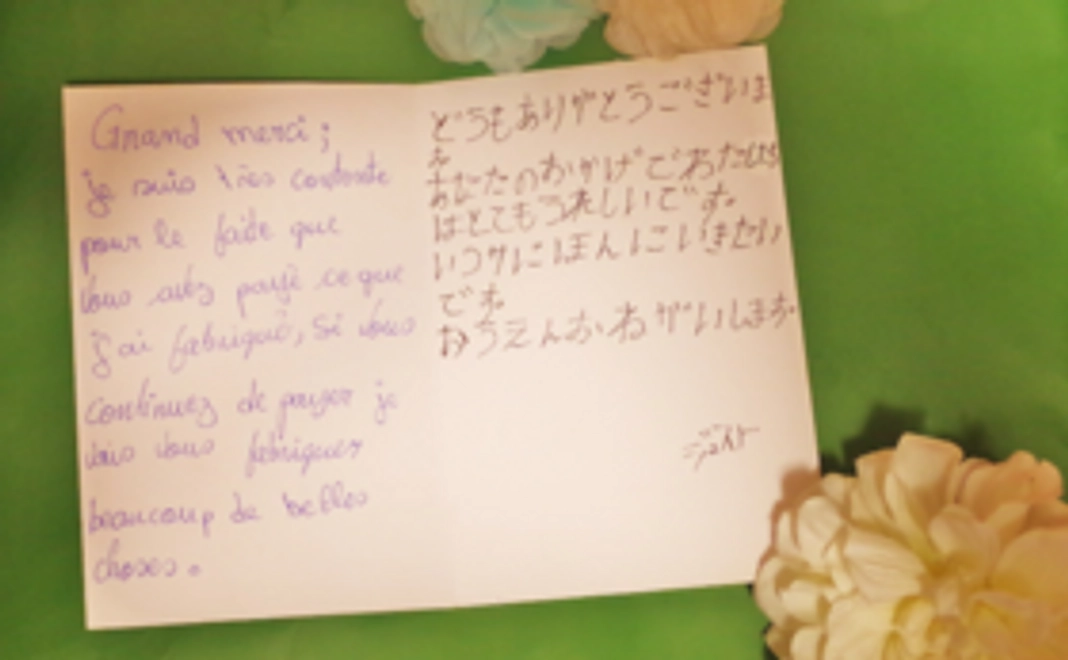 Grand merci ;
je suis très contente
pour le faite que
vous avez payé ce que
j'ai fabriqué, si vous
continuez de payer je
vais vous fabriquer
beaucoup de belles
choses.
どうもありがとうございま
す
あなたのおかげでわたし
はとてもうれしいです。
いつかにほんにいきたい
です。
おうえんおねがいします